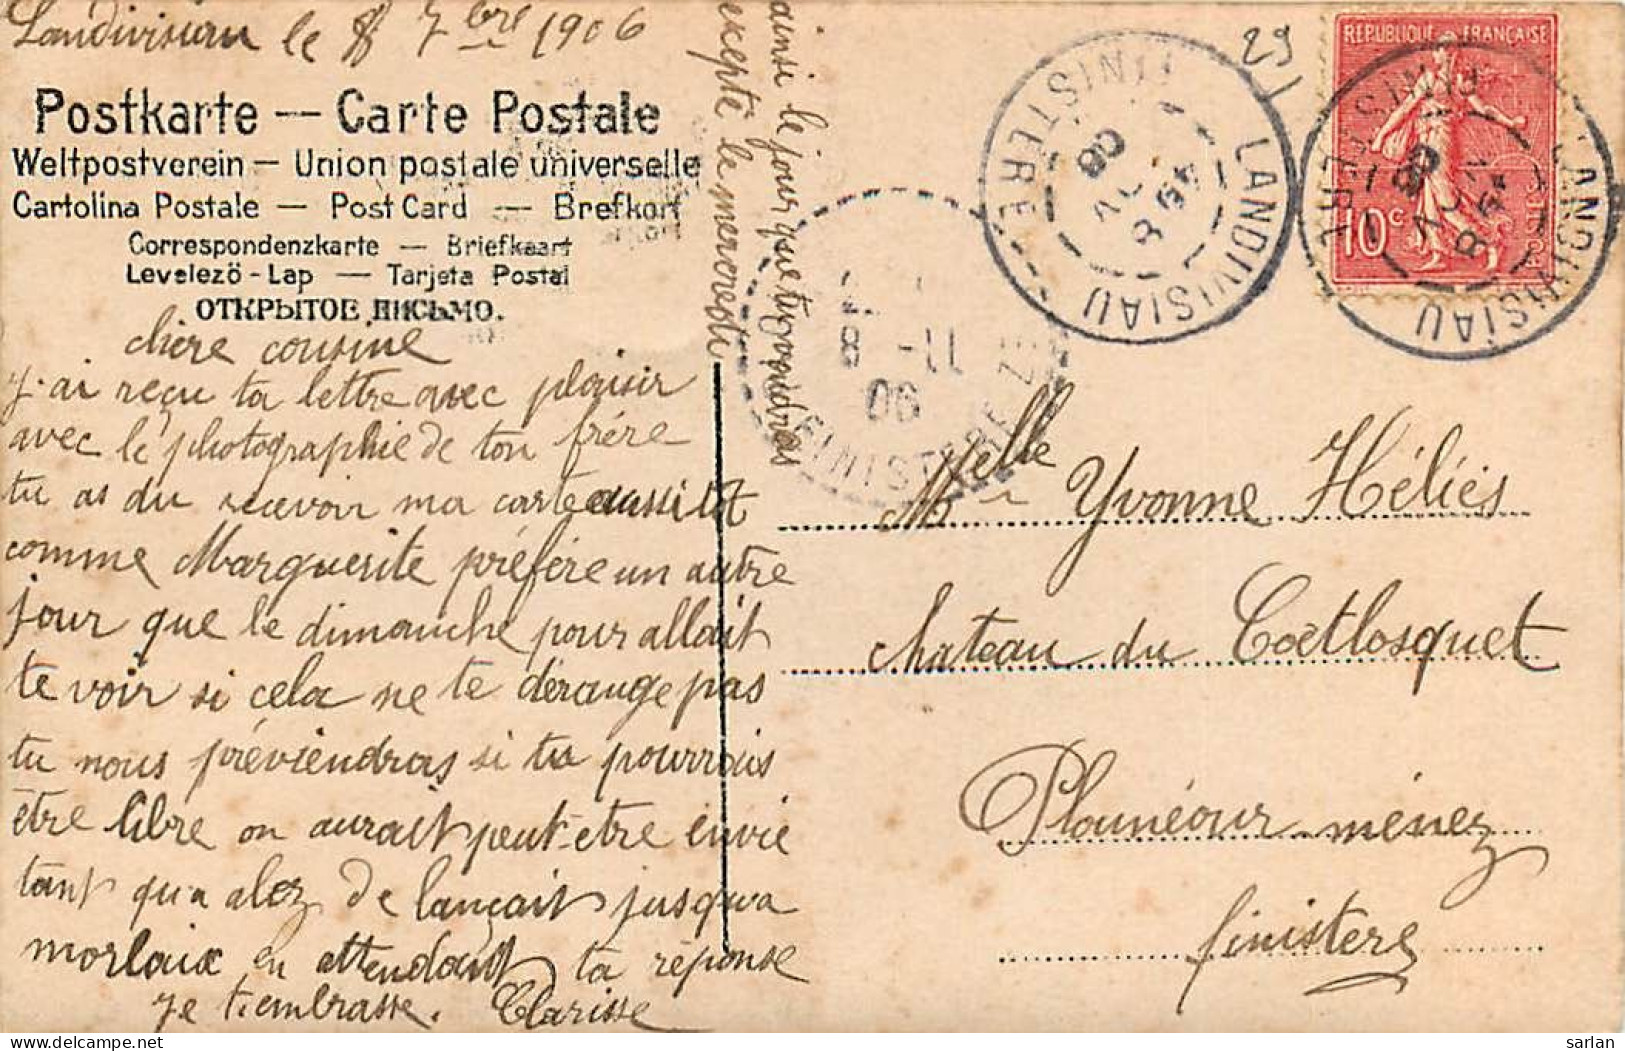 Landivisiau le 8 7bre 1906
Postkarte — Carte Postale
Weltpostverein — Union postale universelle
Cartolina Postale — Post Card — Brefkort
Correspondenzkarte — Briefkaart
Levelező-Lap — Tarjeta Postal
ОТКРЫТОЕ ПИСЬМО.
chère cousine
J'ai reçu ta lettre avec plaisir
avec le photographie de ton frére
tu as du recevoir ma carte aussitot
comme Marguerite préfére un autre
jour que le dimanche pour allait
te voir si cela ne te dérange pas
tu nous préviendras si tu pourrais
être libre on aurait peut-etre envie
tant qu'a alez de lançait jusqu'a
morlaix en attendant ta réponse
je t'embrasse. Clarisse
ainsi le jour que tu voudras
excepté le mercredi
29
REPUBLIQUE FRANÇAISE
10c
LANDIVISIAU
FINISTERE
LANDIVISIAU
FINISTERE
8 -11
06
FINISTERE
Melle Yvonne Héliés
chateau du Coëtlosquet
Plounéour ménez
finistere
sarlan